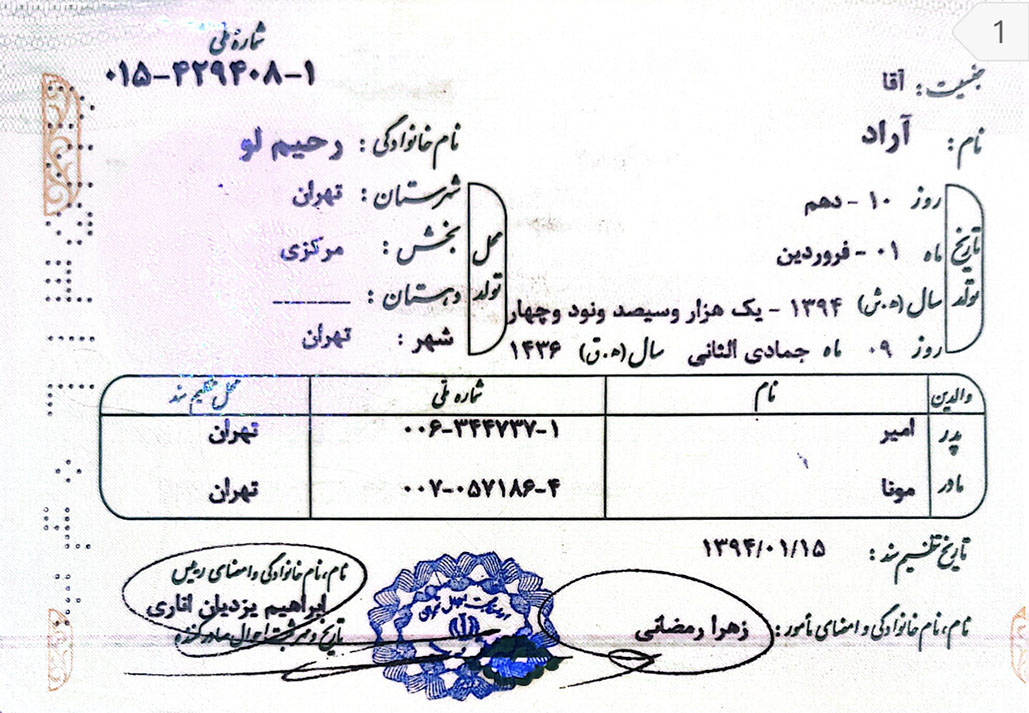 1
شماره ملی
۰۱۵-۴۲۹۴۰۸-۱
جنسیت: آقا
نام: آراد
نام خانوادگی: رحیم لو
تاریخ تولد
روز ۱۰ - دهم
ماه ۰۱ - فروردین
سال (ه.ش) ۱۳۹۴ - یک هزار وسیصد ونود وچهار
روز ۰۹ ماه جمادی الثانی سال (ه.ق) ۱۴۳۶
محل تولد
شهرستان: تهران
بخش: مرکزی
دهستان:
شهر: تهران
والدین نام شماره ملی محل تنظیم سند
پدر امیر ۰۰۶-۳۴۴۷۳۷-۱ تهران
مادر مونا ۰۰۷-۰۵۷۱۸۶-۴ تهران
تاریخ تنظیم سند: ۱۳۹۴/۰۱/۱۵
نام، نام خانوادگی و امضای مأمور: زهرا رمضانی
نام، نام خانوادگی و امضای رئیس
ابراهیم یزدیان اناری